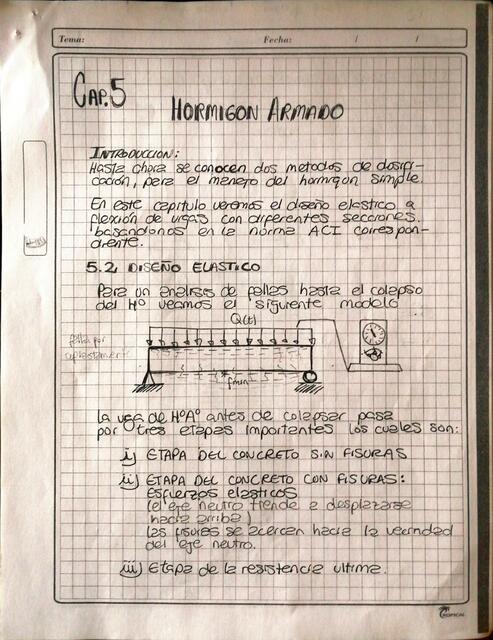 Tema: Fecha: / /
CAP. 5
HORMIGON ARMADO
INTRODUCCION:
Hasta ahora se conocen dos metodos de dosifi-
cación, para el manejo del hormigon simple.
En este capitulo veremos el diseño elastico a
flexión de vigas con diferentes secciones.
basandonos en la norma ACI correspon-
diente.
5.2. DISEÑO ELASTICO
Para un analisis de fallas hasta el colapso
del Hº veamos el siguiente modelo
Q(t)
falla por
aplastamiento
La viga de HºAº antes de colapsar pasa
por tres etapas importantes los cuales son:
i) ETAPA DEL CONCRETO SIN FISURAS
ii) ETAPA DEL CONCRETO CON FISURAS:
Esfuerzos elasticos
(el eje neutro tiende a desplazarse
hacia arriba)
Las fisuras se acercan hacia la vecindad
del eje neutro.
iii) Etapa de la resistencia ultima.
TROPICAL